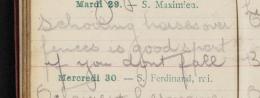 Mardi 29. – S. Maxim'en.
Schooling horses over
fences is good sport
if you dont fall
Mercredi 30 – S. Ferdinand, rei.